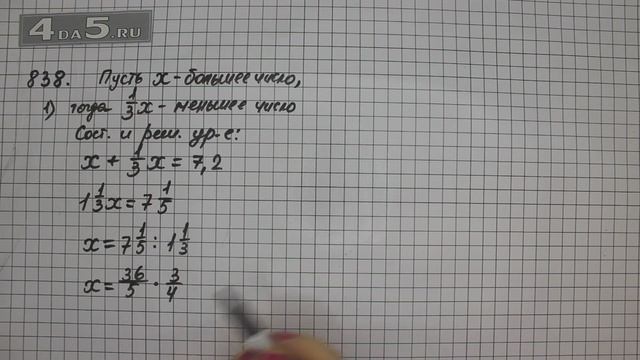 4DA5.RU
838. Пусть x - большее число,
1) тогда 1/3 x - меньшее число
Сост. и реш. ур-е:
x + 1/3 x = 7,2
1 1/3 x = 7 1/5
x = 7 1/5 : 1 1/3
x = 36/5 · 3/4